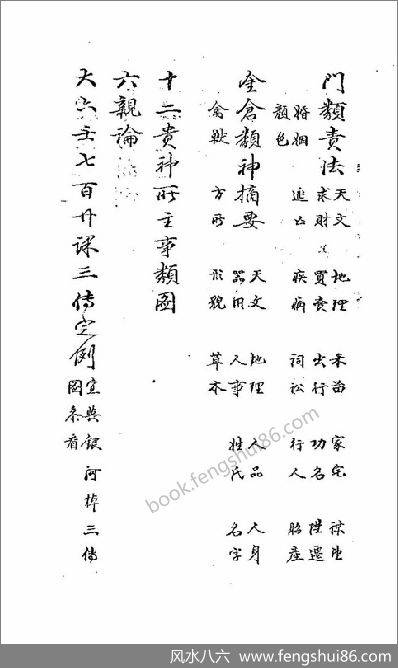 門類責法 天文 地理 禾苗 家宅
求財 買賣 出行 功名 陞遷
婚姻 逃亡 疾病 詞訟 行人 胎產
顏色
金倉類神摘要 天文 地理 人品 人身
器用 人事 姓氏 名字
禽獸 方所 形貌 草木
十二貴神所主事類圖
六親論
大六壬七百廿課三傳定例 宜與 河棹三傳
圖參看
book.fengshui86.com
风水八六 www.fengshui86.com